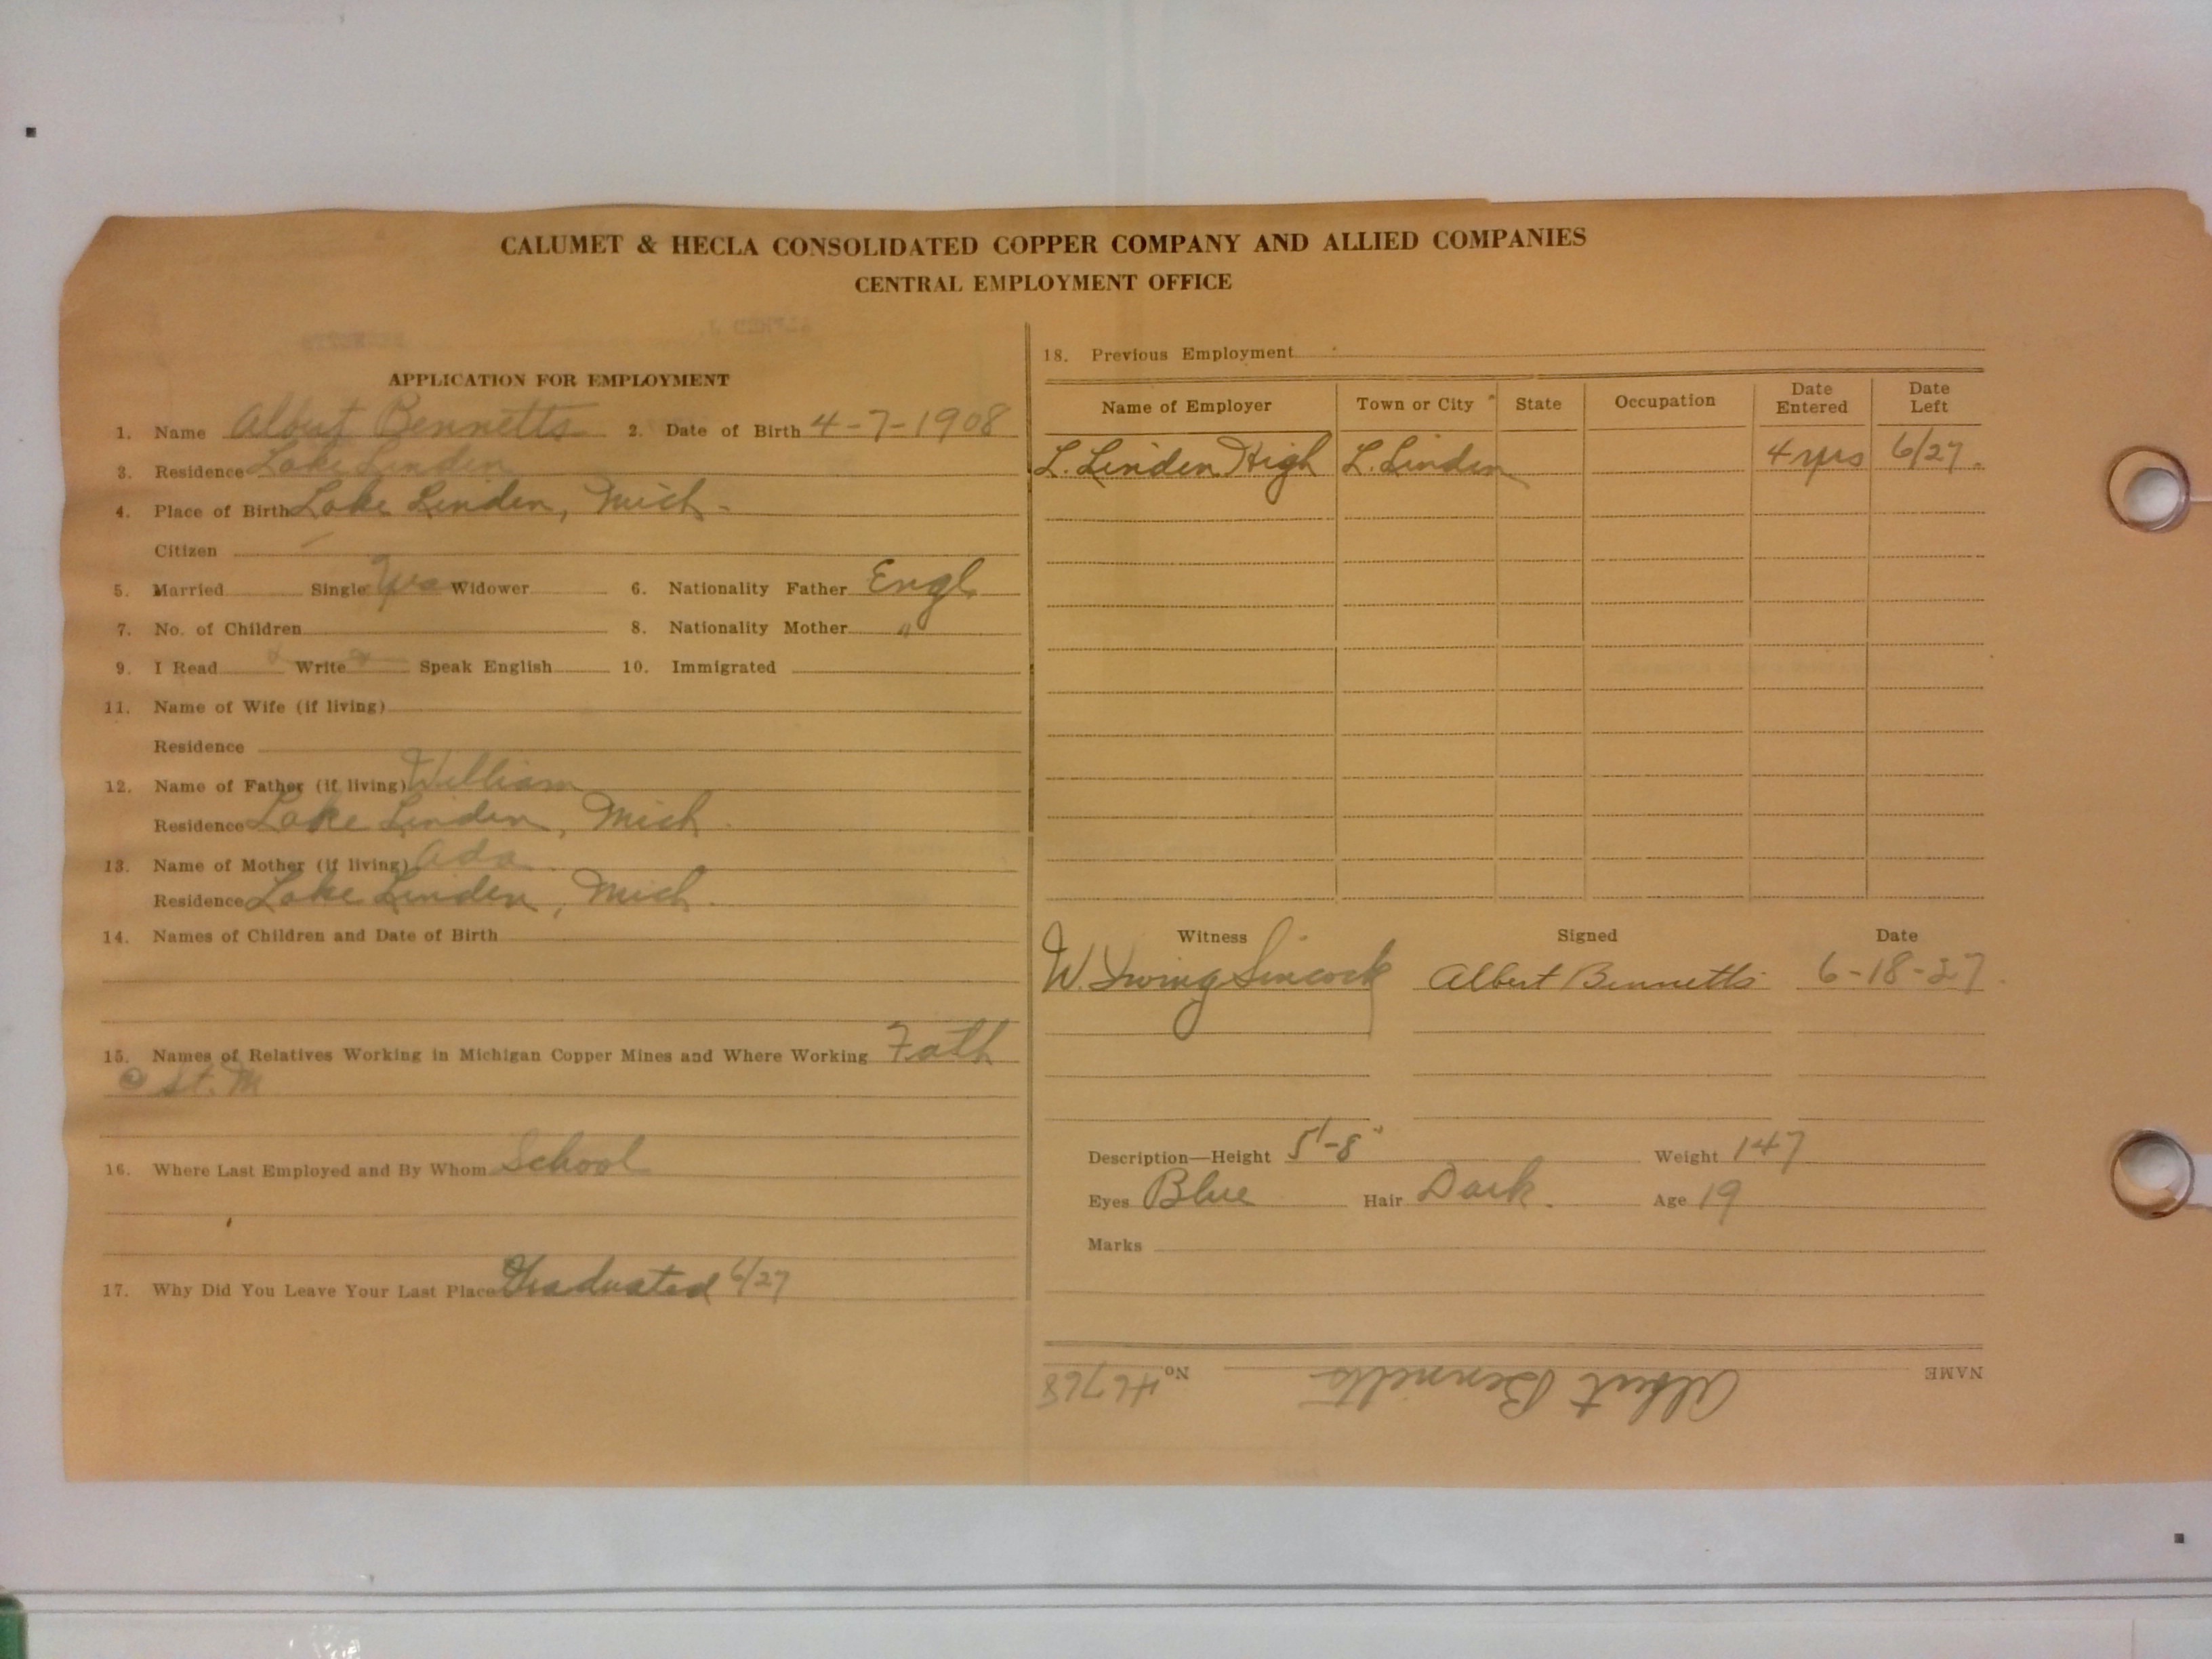 CALUMET & HECLA CONSOLIDATED COPPER COMPANY AND ALLIED COMPANIES
CENTRAL EMPLOYMENT OFFICE
APPLICATION FOR EMPLOYMENT
1. Name Albert Bennetts 2. Date of Birth 4-7-1908
3. Residence Lake Linden
4. Place of Birth Lake Linden, Mich.
Citizen
5. Married Single Yes Widower 6. Nationality Father Engl
7. No. of Children 8. Nationality Mother "
9. I Read Write Speak English 10. Immigrated
11. Name of Wife (if living)
Residence
12. Name of Father (if living) William
Residence Lake Linden, Mich.
13. Name of Mother (if living) Ada
Residence Lake Linden, Mich.
14. Names of Children and Date of Birth
15. Names of Relatives Working in Michigan Copper Mines and Where Working Fath
@ St. M
16. Where Last Employed and By Whom School
17. Why Did You Leave Your Last Place Graduated 6/27
18. Previous Employment
Name of Employer Town or City State Occupation Date Entered Date Left
L. Linden High L. Linden 4 yrs 6/27.
Witness Signed Date
W. Irving Sincock Albert Bennetts 6-18-27
Description—Height 5'-8" Weight 147
Eyes Blue Hair Dark. Age 19
Marks
NAME Albert Bennetts No. 46768